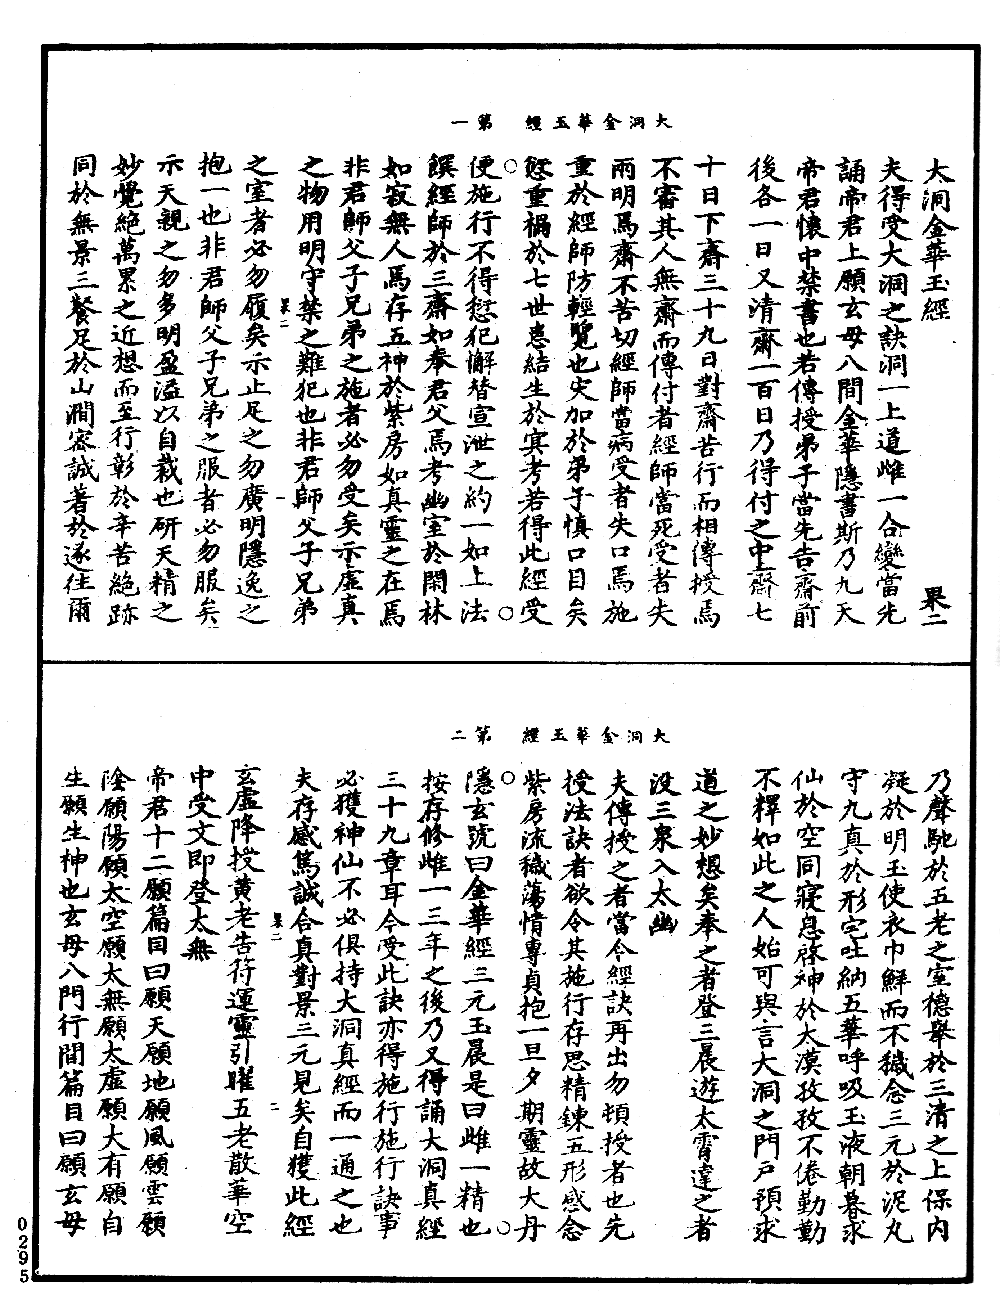 大洞金華玉經　第一
太洞金華玉經　果二
夫得受大洞之訣洞一上道雌一合變當先
誦帝君上願玄母八間金華隱書斯乃九天
帝君懷中禁書也若傳授弟子當先告齋前
後各一日又清齋一百日乃得付之中齋七
十日下齋三十九日對齋苦行而相傳授焉
不審其人無齋而傳付者經師當死受者失
兩明焉齋不苦切經師當病受者失口焉施
重於經師防輕覽也失加於弟子慎口目矣
愆重禍於七世悬結生於寘考若得此經受
便施行不得愆犯懈替宣泄之約一如上法
饌經師於三齋如奉君父焉考幽室於閑林
如寂無人焉存五神於紫房如真靈之在焉
非君師父子兄弟之施者必勿受矣示虛真
之物用明守禁之難犯也非君師父子兄弟
果二　一
之室者必勿履矣示止足之勿廣明隱逸之
抱一也非君師父子兄弟之服者必勿服矣
示天親之勿多明盈溢以自裁也研天精之
妙覺絕萬累之近想而至行彰於辛苦絕跡
同於無景三餐足於山澗密誠著於遂往爾
大洞金華玉經　第二
乃聲馳於五老之室德舉於三清之上保內
凝於明玉使衣巾鮮而不穢念三元於泥丸
守九真於形宅吐納五華呼吸玉液朝暮求
仙於空同寢息啓神於太漠孜孜不倦勤勤
不釋如此之人始可與言大洞之門戶預求
道之妙想矣奉之者登三晨遊太霄違之者
没三泉入太幽
夫傳授之者當令經訣再出勿頓授者也先
授法訣者欲令其施行存思精鍊五形感念
紫房流穢蕩情專貞抱一旦夕期靈故大丹
隱玄號曰金華經三元玉晨是曰雌一精也
按存修雌一三年之後乃又得誦大洞真經
三十九章耳今受此訣亦得施行施行訣事
必獲神仙不必俱持大洞真經而一通之也
夫存感篤誠合真對景三元見矣自獲此經
果二　二
玄虛降授黃老告符運靈引曜五老散華空
中受文即登太無
帝君十二願篇目曰願天願地願風願雲願
陰願陽願太空願太無願太虛願大有願自
生願生神也玄母八門行間篇目曰願玄母
0295